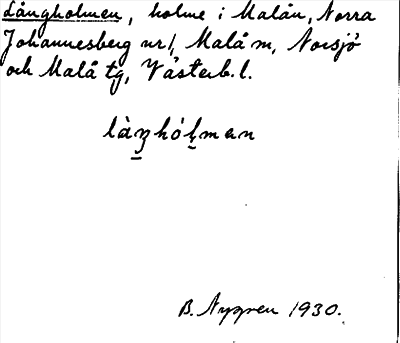 Långholmen, holme i Malån, Norra
Johannesberg nr 1, Malå m, Norsjö
och Malå tg, Västerb. l.
làŋhólman
B. Nygren 1930.